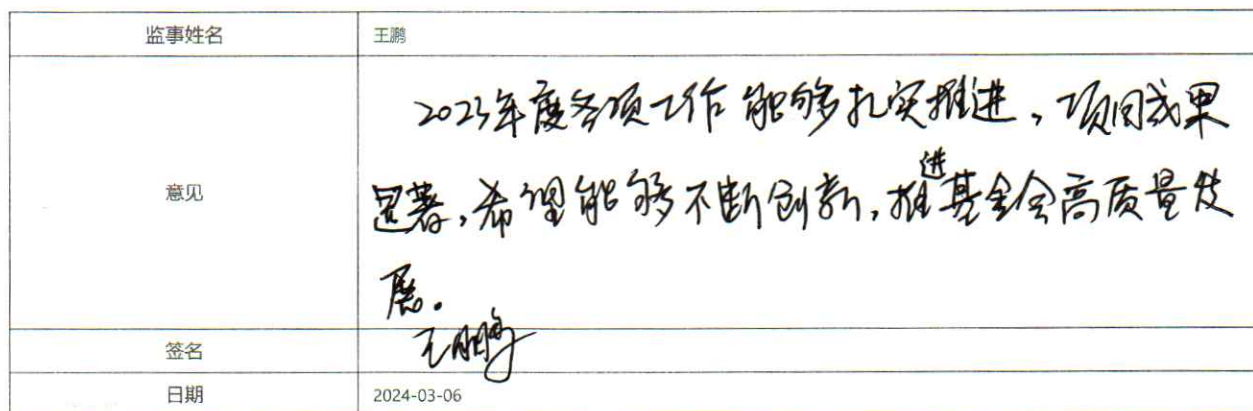 监事姓名 王鹏
意见
2023年度各项工作能够扎实推进，项目成果
显著，希望能够不断创新，推进基金会高质量发
展。
签名 王鹏
日期 2024-03-06